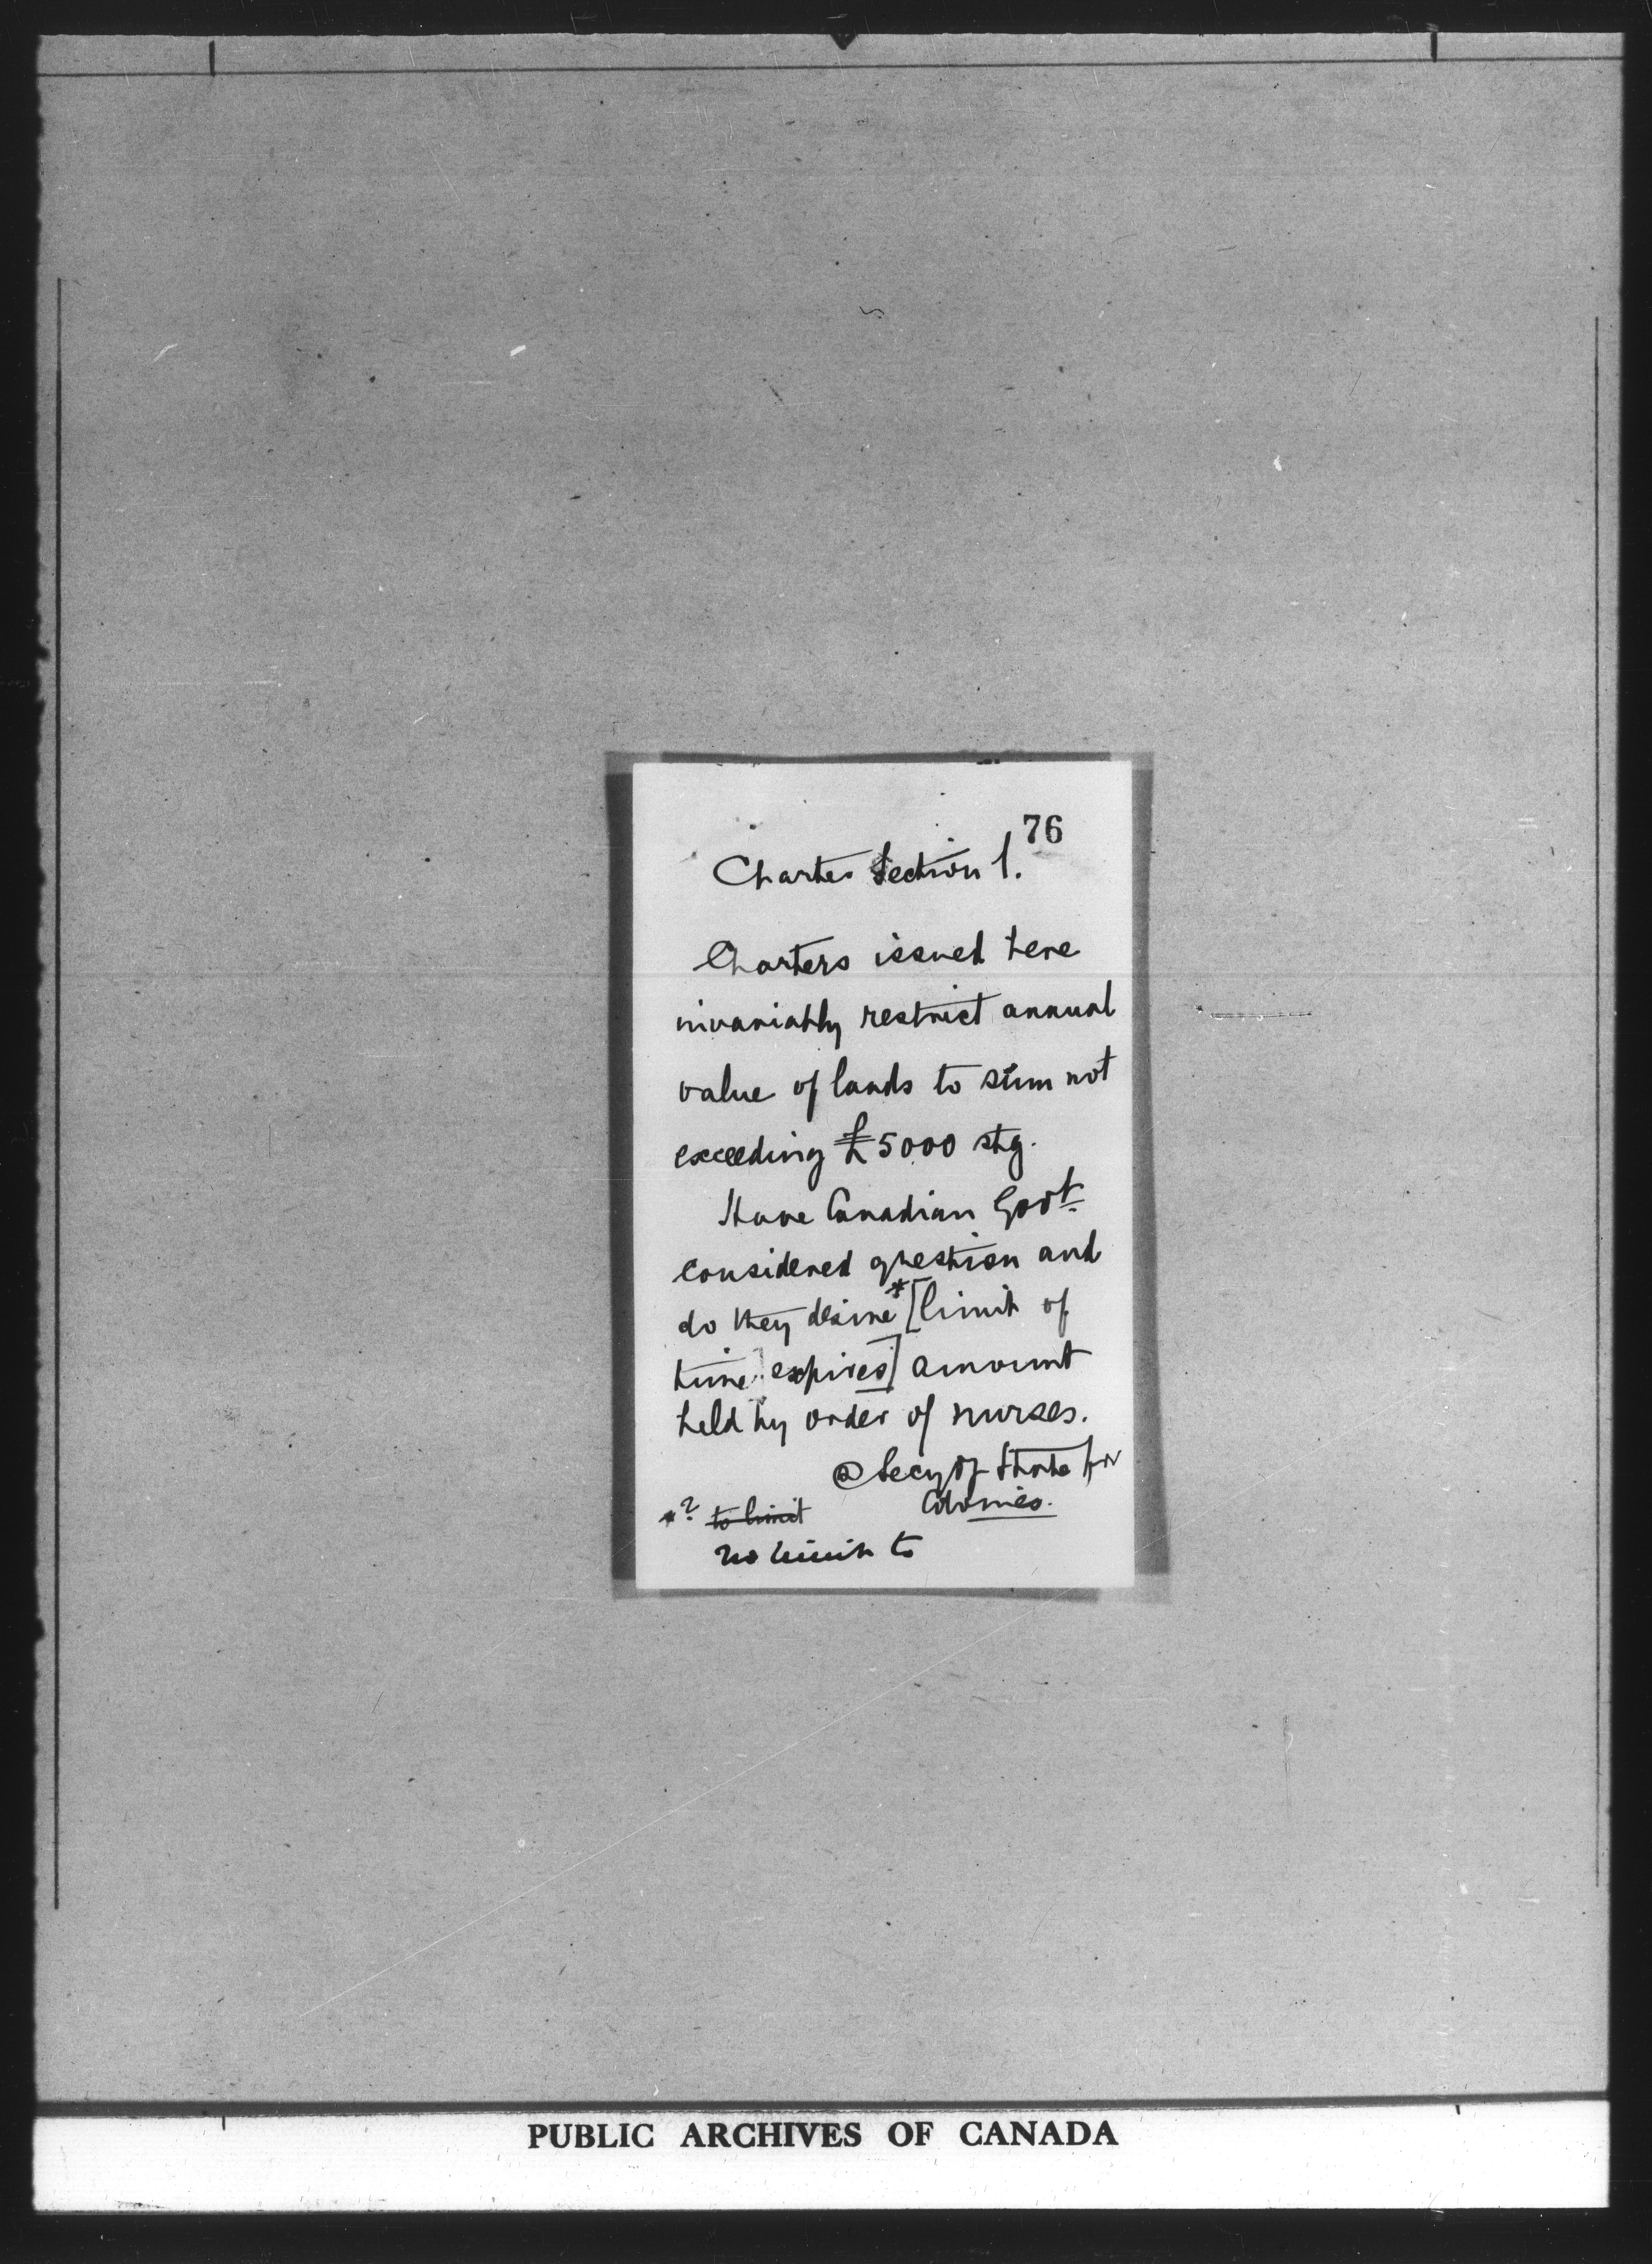 76
Charter Section 1.
Charters issued here
invariably restrict annual
value of lands to sum not
exceeding £5000 stg.
Have Canadian Govt
considered question and
do they desire * [limit of
time expires] amount
held by order of nurses.
@ Secy of State for
Colonies.
*? to limit
no limit to
PUBLIC ARCHIVES OF CANADA